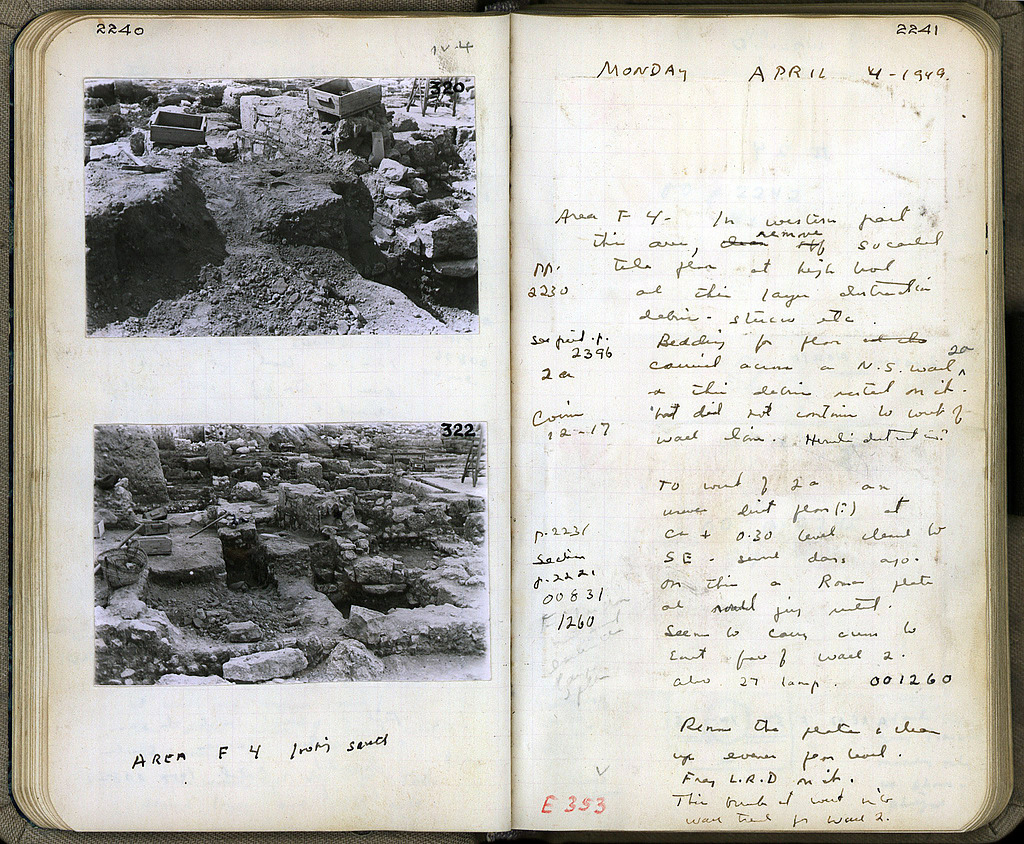 2240
IV-4
320
322
AREA F 4 looking south
2241
MONDAY APRIL 4-1949.
Area F 4- In western part
this area, clean remove of socalled
pp. tile floor at high level
2230 at this layer destruction
debris - stucco etc.
See pict. p. Bedding for floor
2396 carried across a N.S. wall 2a
2a & this debris rested on it.
Coins but did not continue to west of
12-17 wall line.
To west of 2a an
uneven dirt floor(?) at
p. 2231 ca + 0.30 level cleaned to
Section SE - several days ago.
p. 2221 On this a Roman plate
00831 and
1260 Seems to carry across to
East face of wall 2.
also 27 lamp. 001260
Remove the plate & clean
up uneven floor level.
Frag L.R.D on it.
E 353 This
wall trench for wall 2.